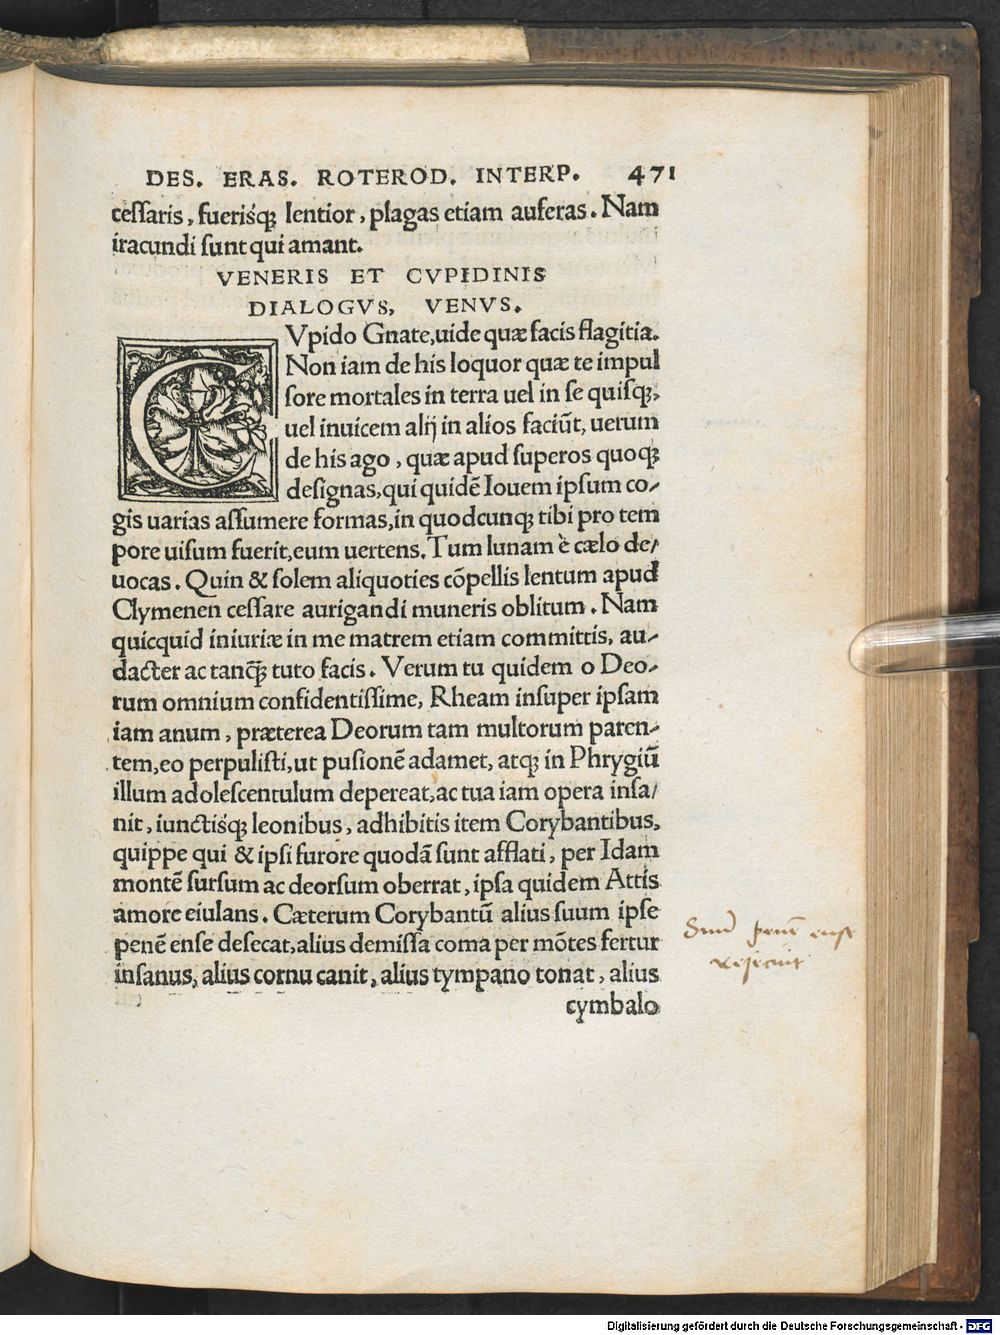 DES. ERAS. ROTEROD. INTERP. 471
ceſſaris, fueriśqꝫ lentior, plagas etiam auferas. Nam
iracundi ſunt qui amant.
VENERIS ET CVPIDINIS
DIALOGVS, VENVS.
CVpido Gnate, uide quæ facis flagitia.
Non iam de his loquor quæ te impul
ſore mortales in terra uel in ſe quiſqꝫ,
uel inuicem alij in alios faciũt, uerum
de his ago, quæ apud ſuperos quoqꝫ
deſignas, qui quidẽ Iouem ipſum co-
gis uarias aſſumere formas, in quodcunqꝫ tibi pro tem
pore uiſum fuerit, eum uertens. Tum lunam è cælo de-
uocas. Quin & ſolem aliquoties cõpellis lentum apud
Clymenen ceſſare aurigandi muneris oblitum. Nam
quicquid iniuriæ in me matrem etiam committis, au-
dacter ac tanq̃ꝫ tuto facis. Verum tu quidem o Deo-
rum omnium confidentiſſime, Rheam inſuper ipſam
iam anum, præterea Deorum tam multorum paren-
tem, eo perpuliſti, ut puſionẽ adamet, atqꝫ in Phrygiũ
illum adoleſcentulum depereat, ac tua iam opera inſa-
nit, iunctiśqꝫ leonibus, adhibitis item Corybantibus,
quippe qui & ipſi furore quodã ſunt afflati, per Idam
montẽ ſurſum ac deorſum oberrat, ipſa quidem Attis
amore eiulans. Cæterum Corybantũ alius ſuum ipſe
penẽ enſe deſecat, alius demiſſa coma per mõtes fertur
inſanus, alius cornu canit, alius tympano tonat, alius
cymbalo
penẽ enſe
Digitalisierung gefördert durch die Deutsche Forschungsgemeinschaft - DFG